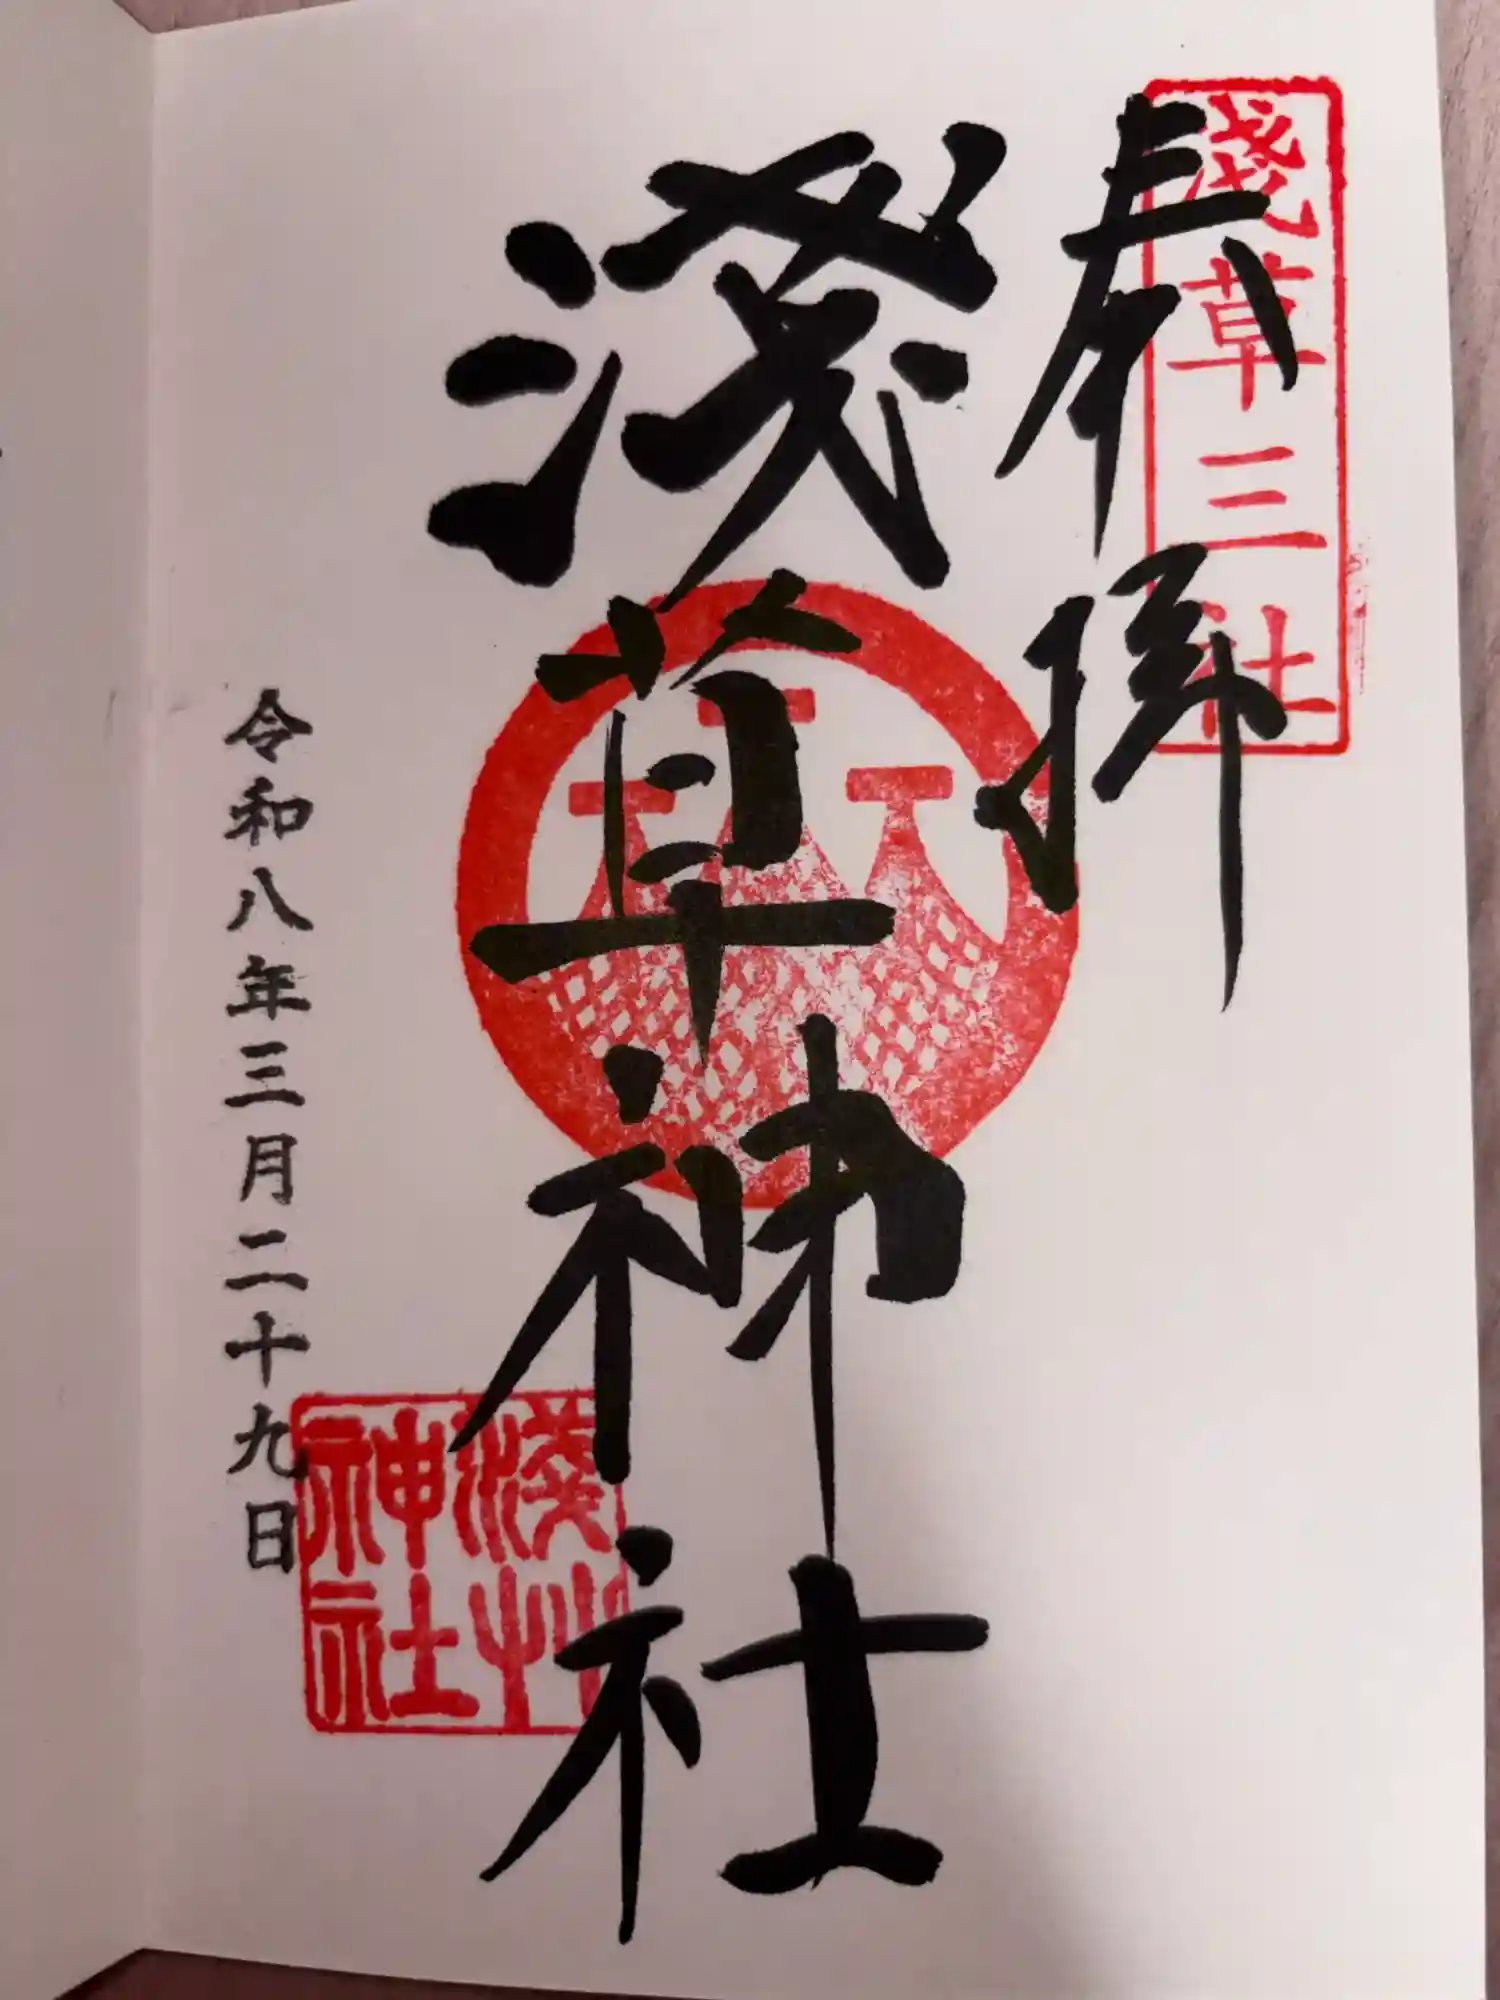 淺草三社
奉拝
淺草神社
淺艸
神社
令和八年三月二十九日